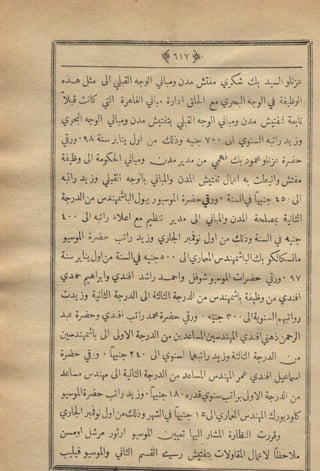 ﴿ ٦١٧ ﴾
عزتلو السيد بك شكري مفتش مدن ومباني الوجه القبلي الى مثل هذه
الوظيفة في الوجه البحري مع الحاق ادارة مباني القاهرة التي كانت قبلاً
تابعة لتفتيش مدن ومباني الوجه القبلي بتفتيش مدن ومباني الوجه البحري
وزيد راتبه السنوي الى ٧٠٠ جنيه وذلك من اول يناير سنة ٩٨ . ورقي
حضرة عزتلو محمود بك فهمي من مدير مدن ومباني الحكومة الى وظيفة
مفتش وانيطت به اعمال تفتيش المدن والمباني بالوجه القبلي وزيد راتبه
الى ٤٥٠ جنيهاً في السنة . ورقي حضرة الموسيو بيول الباشمهندس من الدرجة
الثانية بمصلحة المدن والمباني الى مدير تنظيم مع اعلاء راتبه الى ٤٠٠
جنيه في السنة وذلك من اول نوفمبر الجاري وزيد راتب حضرة الموسيو
مانسكالكو بك الباشمهندس المعماري الى ٥٠٠ جنيه في السنة من اول يناير سنة
٩٧ . ورقي حضرات الموسيو شوفل واحمد راشد افندي وابراهيم حمدي
افندي من وظيفة باشمهندس من الدرجة الثالثة الى الدرجة الثانية وزيدت
رواتبهم السنوية الى ٣٠٠ جنيه . ورقي حضرة محمد راتب افندي وحضرة عبد
الرحمن ذهني افندي المهندسين المساعدين من الدرجة الاولى الى باشمهندسين
من الدرجة الثالثة وزيد راتبهما السنوي الى ٢٤٠ جنيهاً . ورقي حضرة
اسماعيل افندي عمر المهندس المساعد من الدرجة الثانية الى مهندس مساعد
من الدرجة الاولى براتب سنوي قدره ١٨٠ جنيهاً . وزيد راتب حضرة الموسيو
كاوديورك المهندس المعماري الى ١٥ جنيهاً في الشهر وذلك من اول نوفمبر الجاري
وقررت النظارة المشار اليها تعيين الموسيو ارثور مرشل اومسن
ملاحظاً لاعمال المقاولات بتفتيش رسيے القسم الثاني والموسيو فيليب